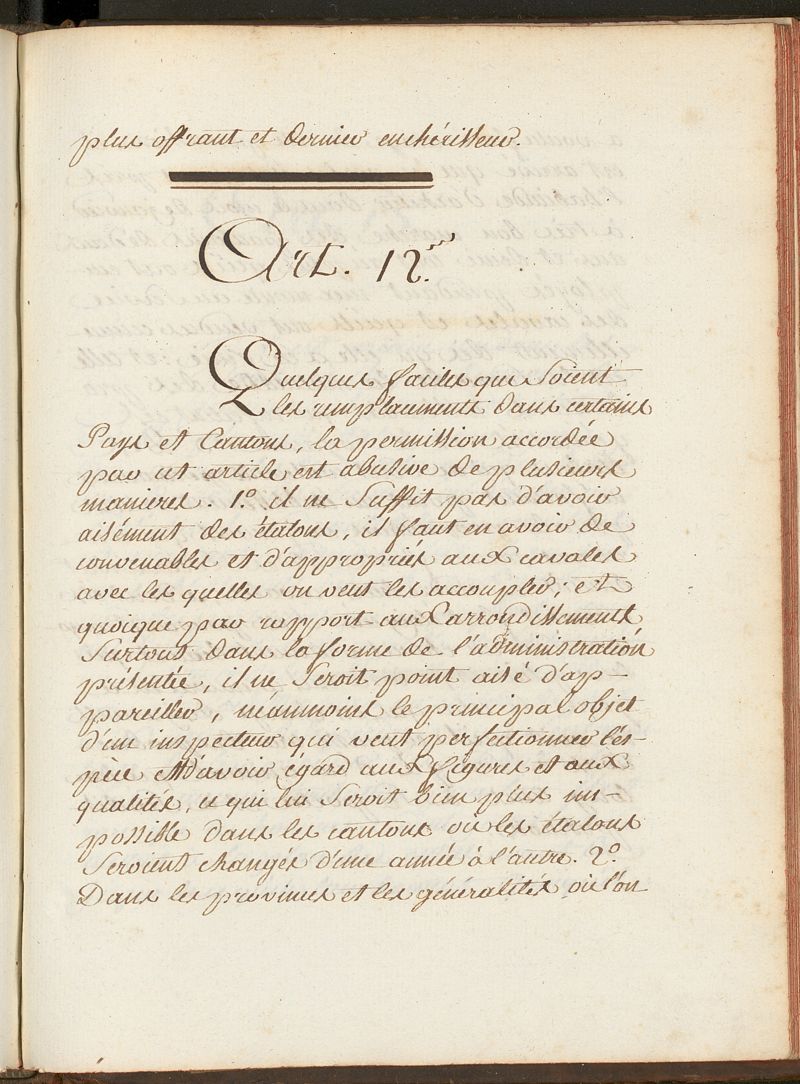 plus offrant et dernier enchérisseur.
Art. 12.
Quelques faciles que soient
les remplacements dans certains
Pays et Cantons, la permission accordée
par cet article est abusive de plusieurs
manieres. 1.° il ne suffit pas d'avoir
aisément des étalons, il faut en avoir de
convenables et d'appropriés aux cavales
avec les quelles on veut les accoupler; et
quoique par rapport aux arrondissements
surtout dans la forme de l'administration
présentée, il ne seroit point aisé d'ap-
pareiller, néanmoins le principal objet
d'un inspecteur qui veut perfectionner l'és-
pèce est d'avoir égard aux figures et aux
qualités, ce qui lui seroit bien plus im-
possible dans les cantons où les étalons
seroient changés d'une année à l'autre. 2.°
Dans les provinces et les généralités où l'on